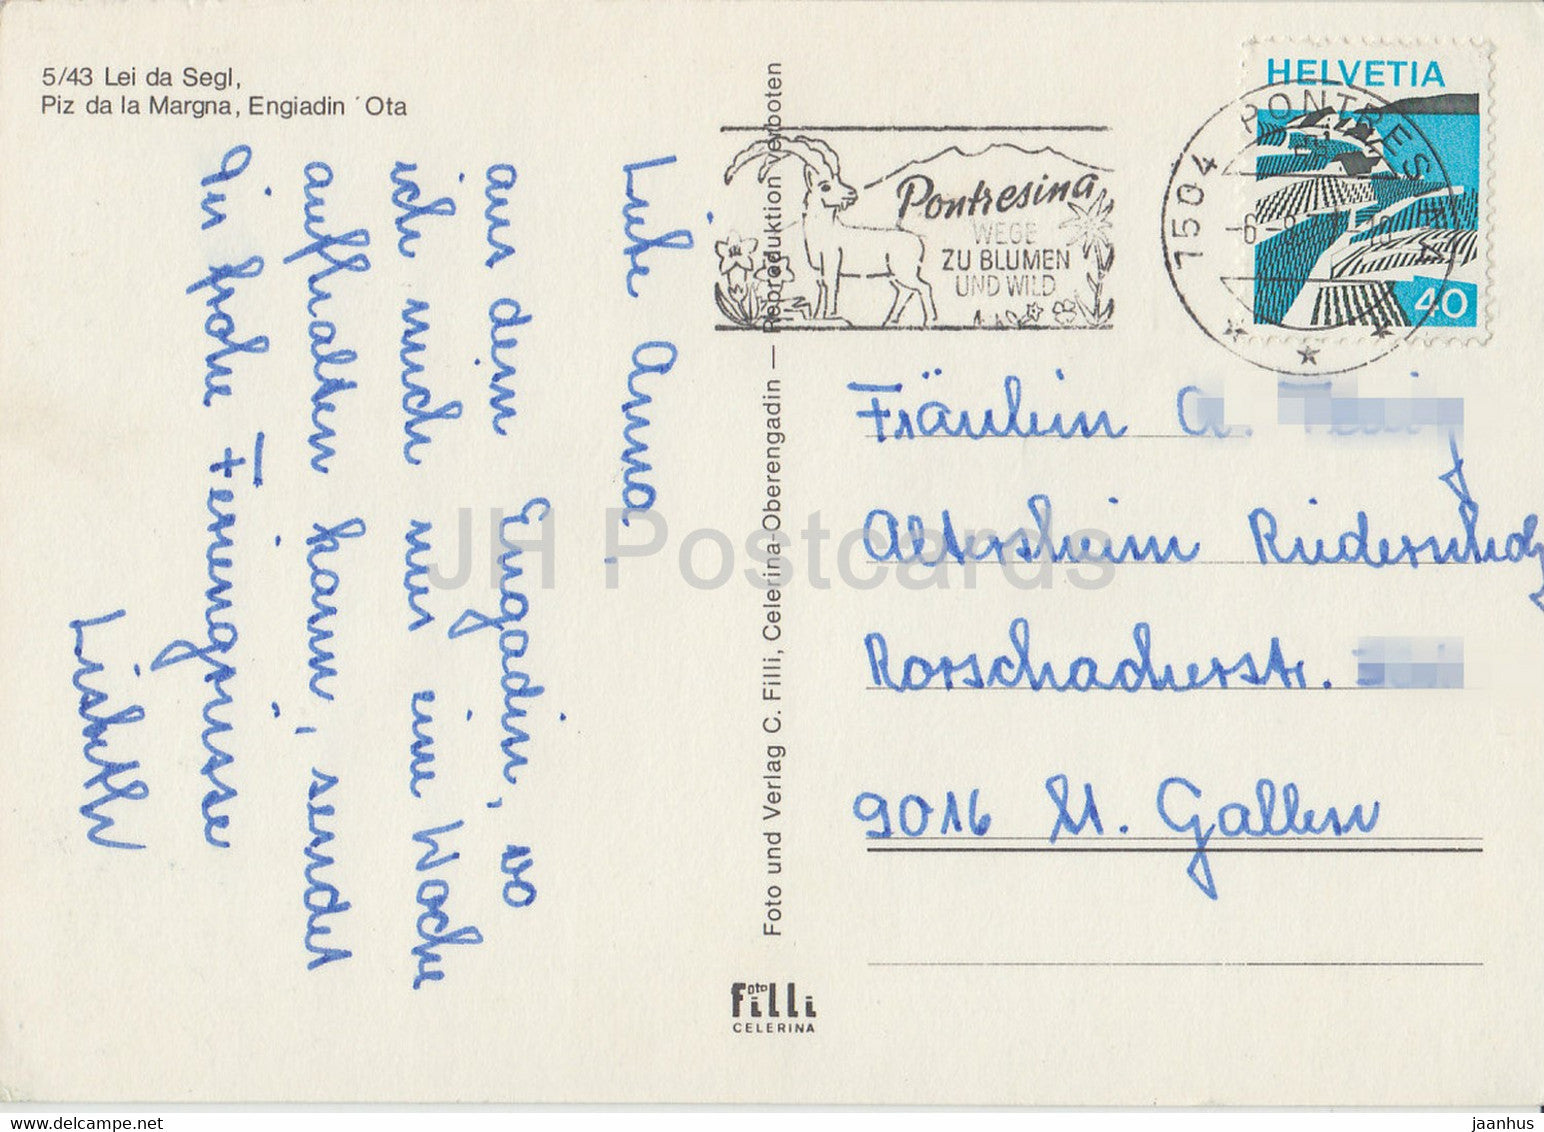 5/43 Lei da Segl,
Piz da la Margna, Engiadin ´Ota
Liebe Anna,
aus dem Engadin, wo
ich mich nur eine Woche
aufhalten kann, sendet
Dir frohe Feriengrüsse
Lisbeth
Foto und Verlag C. Filli, Celerina-Oberengadin — Reproduktion verboten
Foto Filli
CELERINA
Pontresina
WEGE
ZU BLUMEN
UND WILD
7504 PONTRESINA
HELVETIA
40
Fräulein A.
Altersheim Riederenholz
Rorschacherstr.
9016 St. Gallen
JH Postcards
delcampe.net
jaanhus